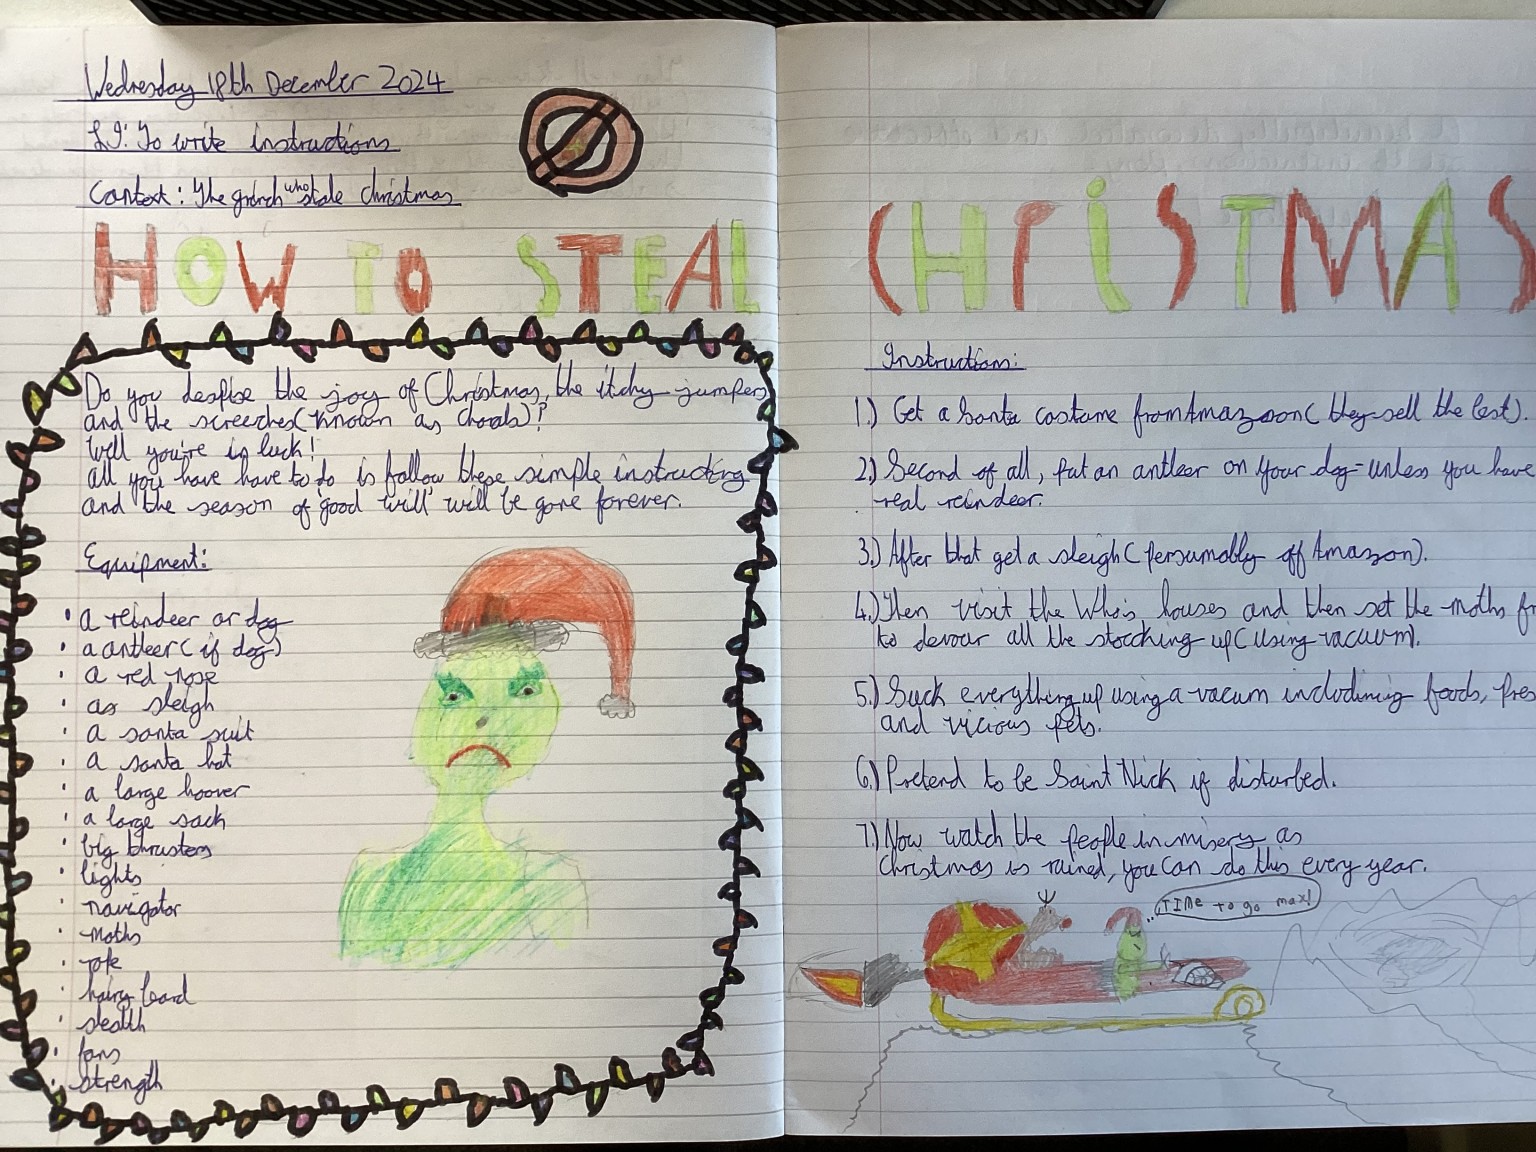 Wednesday 18th December 2024
L.I: To write instructions
Context: The grinch who stole christmas
HOW TO STEAL CHriSTMAS
Do you despise the joy of Christmas, the itchy jumpers
and the screeches (known as chorals)?
Well you're in luck!
All you have have to do is follow these simple instructing
and the season of good will will be gone forever.
Equipment:
• a reindeer or dog
• a antleer (if dog)
• a red nose
• as sleigh
• a santa suit
• a santa hat
• a large hoover
• a large sack
• big thrusters
• lights
• navigator
• moths
• rope
• hairy beard
• stealth
• fans
• strength
Instructions:
1.) Get a Santa costume from Amazoon (they sell the best).
2.) Second of all, put an antleer on your dog-unless you have
real reindeer.
3.) After that get a sleigh (persumably of Amazon).
4.) Then visit the Who's houses and then set the moths
to devour all the stocking up (using vacuum).
5.) Suck everything up using a vacum includiming foods,
and vicious pets.
6.) Pretend to be Saint Nick if disturbed.
7.) Now watch the people in misery as
christmas is ruined, you can do this every year.
TIMe to go max!